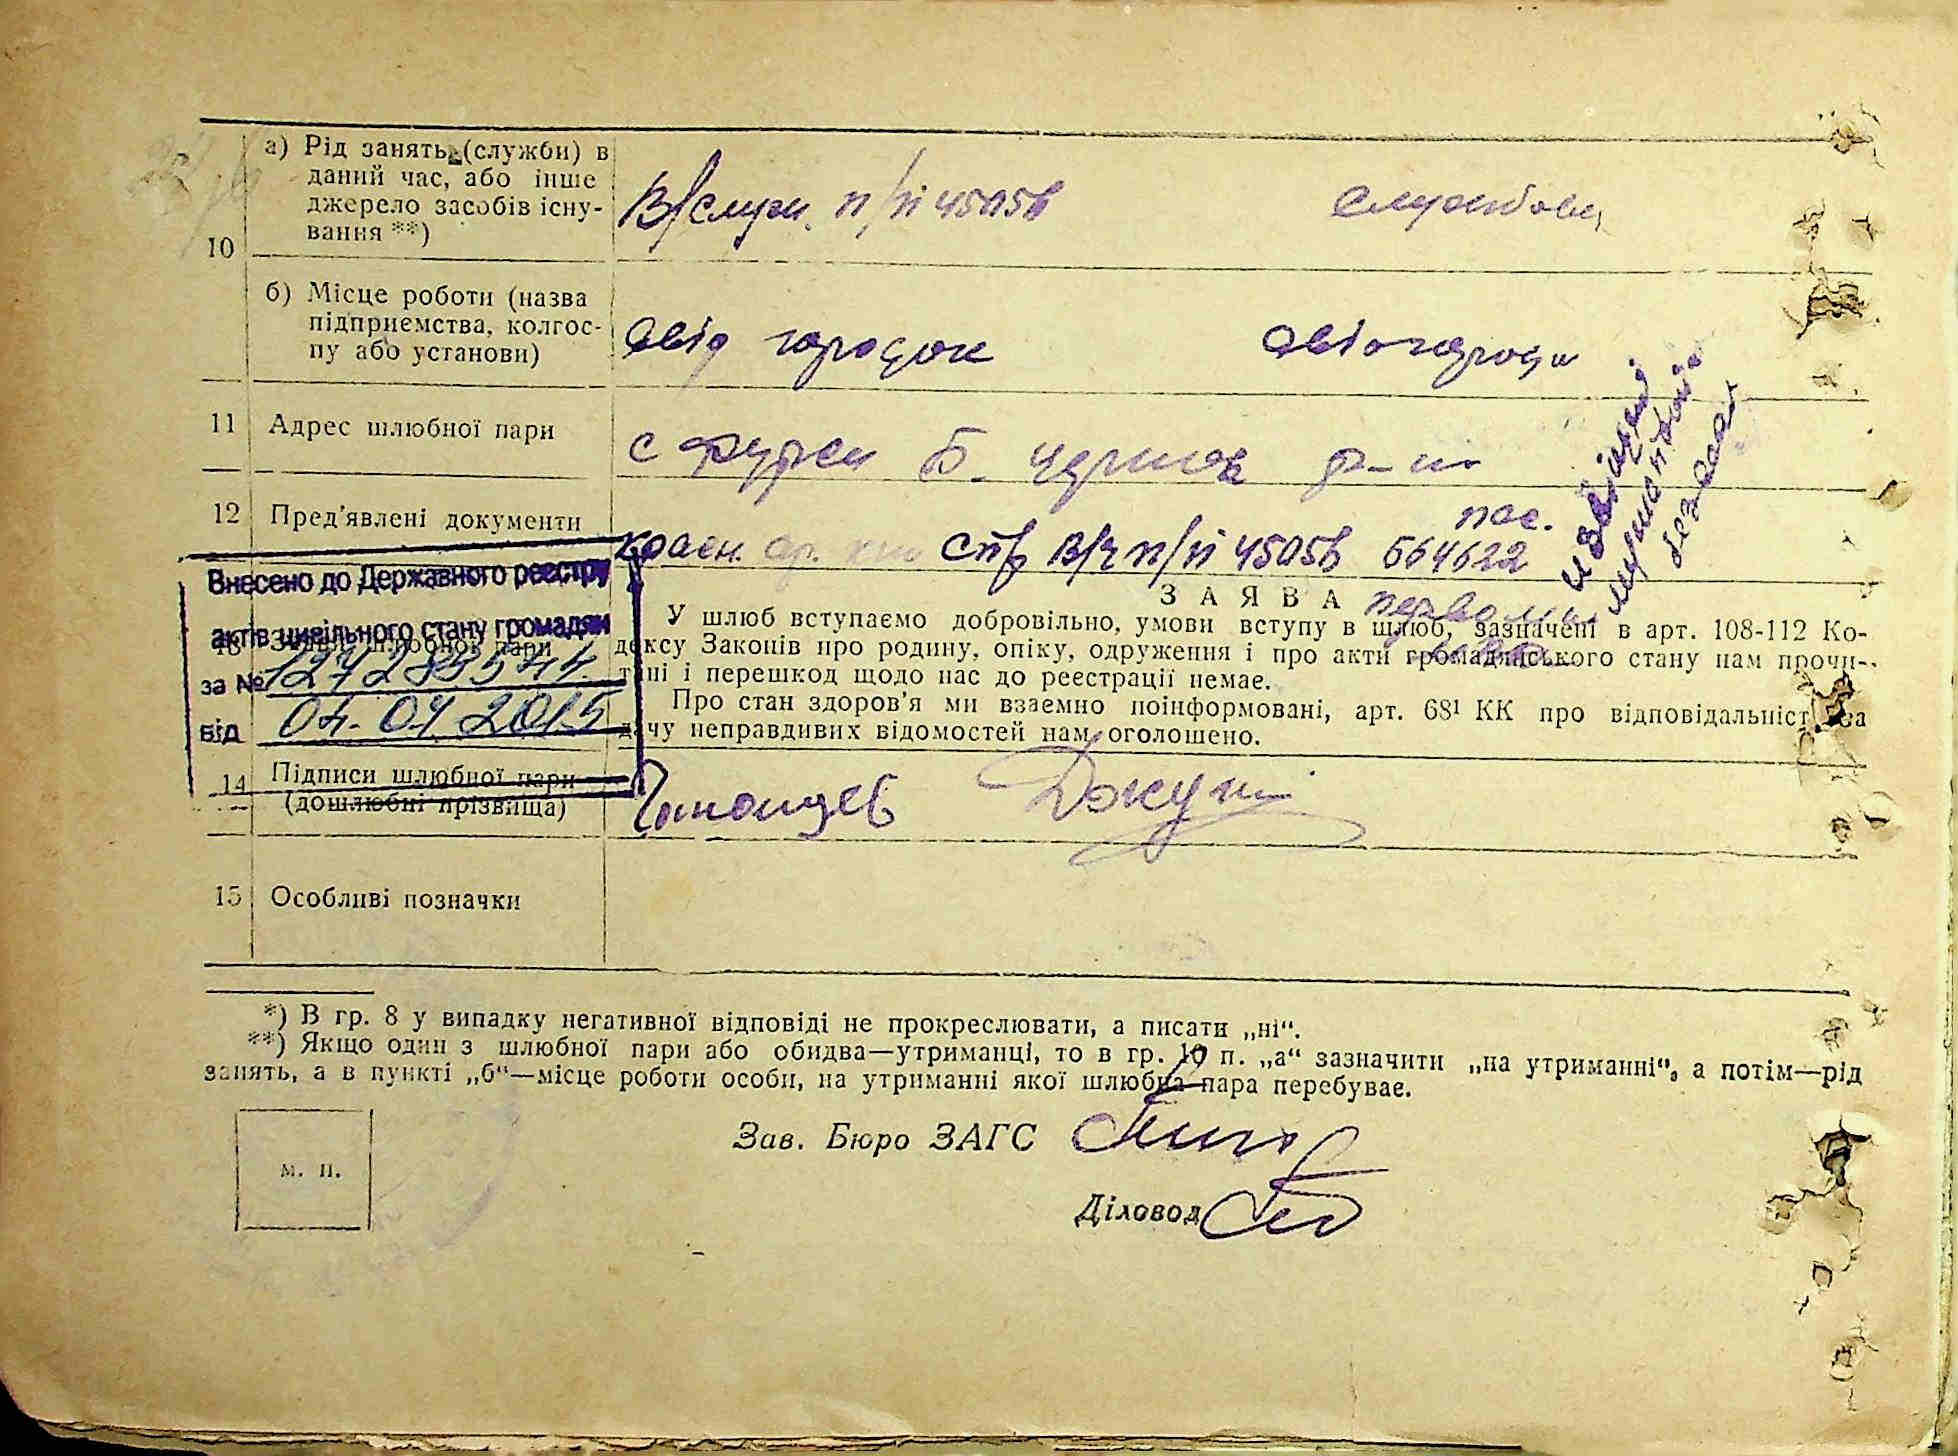 а) Рід занять (службн) в
даний час, або інше
джерело засобів існу-
вання **)
В/служ. п/п 4505в
службов
10
б) Місце роботи (назва
підприємства, колгос-
пу або установи)
Авіа городок
Авіогородок
11 Адрес шлюбної пари
с Фурси Б. Церков р-н
12 Пред'явлені документи
пас.
красн. ар. кн спр в/ч п/п 4505в 564622
Внесено до Державного реєстру
актів цивільного стану громадян
за № 1272895
від 04. 04 2015
13 Заява шлюбної пари
З А Я В А
У шлюб вступаємо добровільно, умови вступу в шлюб, зазначені в арт. 108-112 Ко-
дексу Законів про родину, опіку, одруження і про акти громадянського стану нам прочи-
тані і перешкод щодо нас до реєстрації немає.
Про стан здоров'я ми взаємно поінформовані, арт. 68¹ КК про відповідальність за
дачу неправдивих відомостей нам оголошено.
14 Підписи шлюбної пари
(дошлюбні прізвища)
15 Особливі позначки
*) В гр. 8 у випадку негативної відповіді не прокреслювати, а писати „ні“.
**) Якщо один з шлюбної пари або обидва—утриманці, то в гр. 10 п. „а“ зазначити „на утриманні“, а потім—рід
занять, а в пункті „б“—місце роботи особи, на утриманні якої шлюбна пара перебуває.
Зав. Бюро ЗАГС
м. п.
Діловод